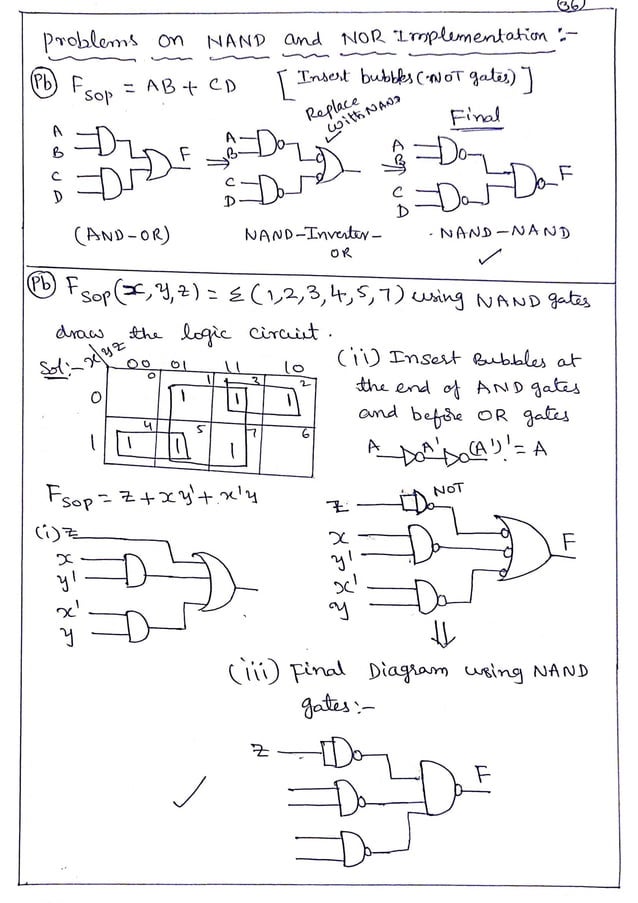 36
Problems on NAND and NOR Implementation :-
(Pb) F_SOP = AB + CD [Insert bubbles (NOT gates)]
Replace
with NAND
Final
A
B
C
D
F
A
B
C
D
A
B
C
D
F
(AND-OR)
NAND-Inverter-
OR
NAND-NAND
(Pb) F_SOP(x, y, z) = Σ (1,2,3,4,5,7) using NAND gates
draw the logic circuit.
Sol:- x\yz 00 01 11 10
0 0 1 1 1 3 1 2
0 1 1 1
4 5 7 6
1 1 1 1
F_SOP = z + xy' + x'y
(i) z
x
y'
x'
y
(ii) Insert Bubbles at
the end of AND gates
and before OR gates
A A' (A')' = A
z NOT
x
y'
x'
y
F
(iii) Final Diagram using NAND
gates:-
z
F